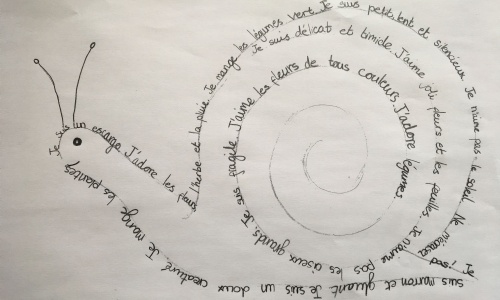 Je suis un escargo J'adore les plantes
l'herbe et la pluie. Je mange les légumes vert. Je suis petit, lent et silencieux. Je n'aime pas le soleil. Ne m'écrasez pas! Je
suis marron et gluant. Je suis un doux créature. Je mange les plantes
Je suis délicat et timide. J'aime joli fleurs et les feuilles. Je n'aime pas les oiseux grands. Je suis fragile. J'aime les fleurs de tous couleurs. J'adore légumes.